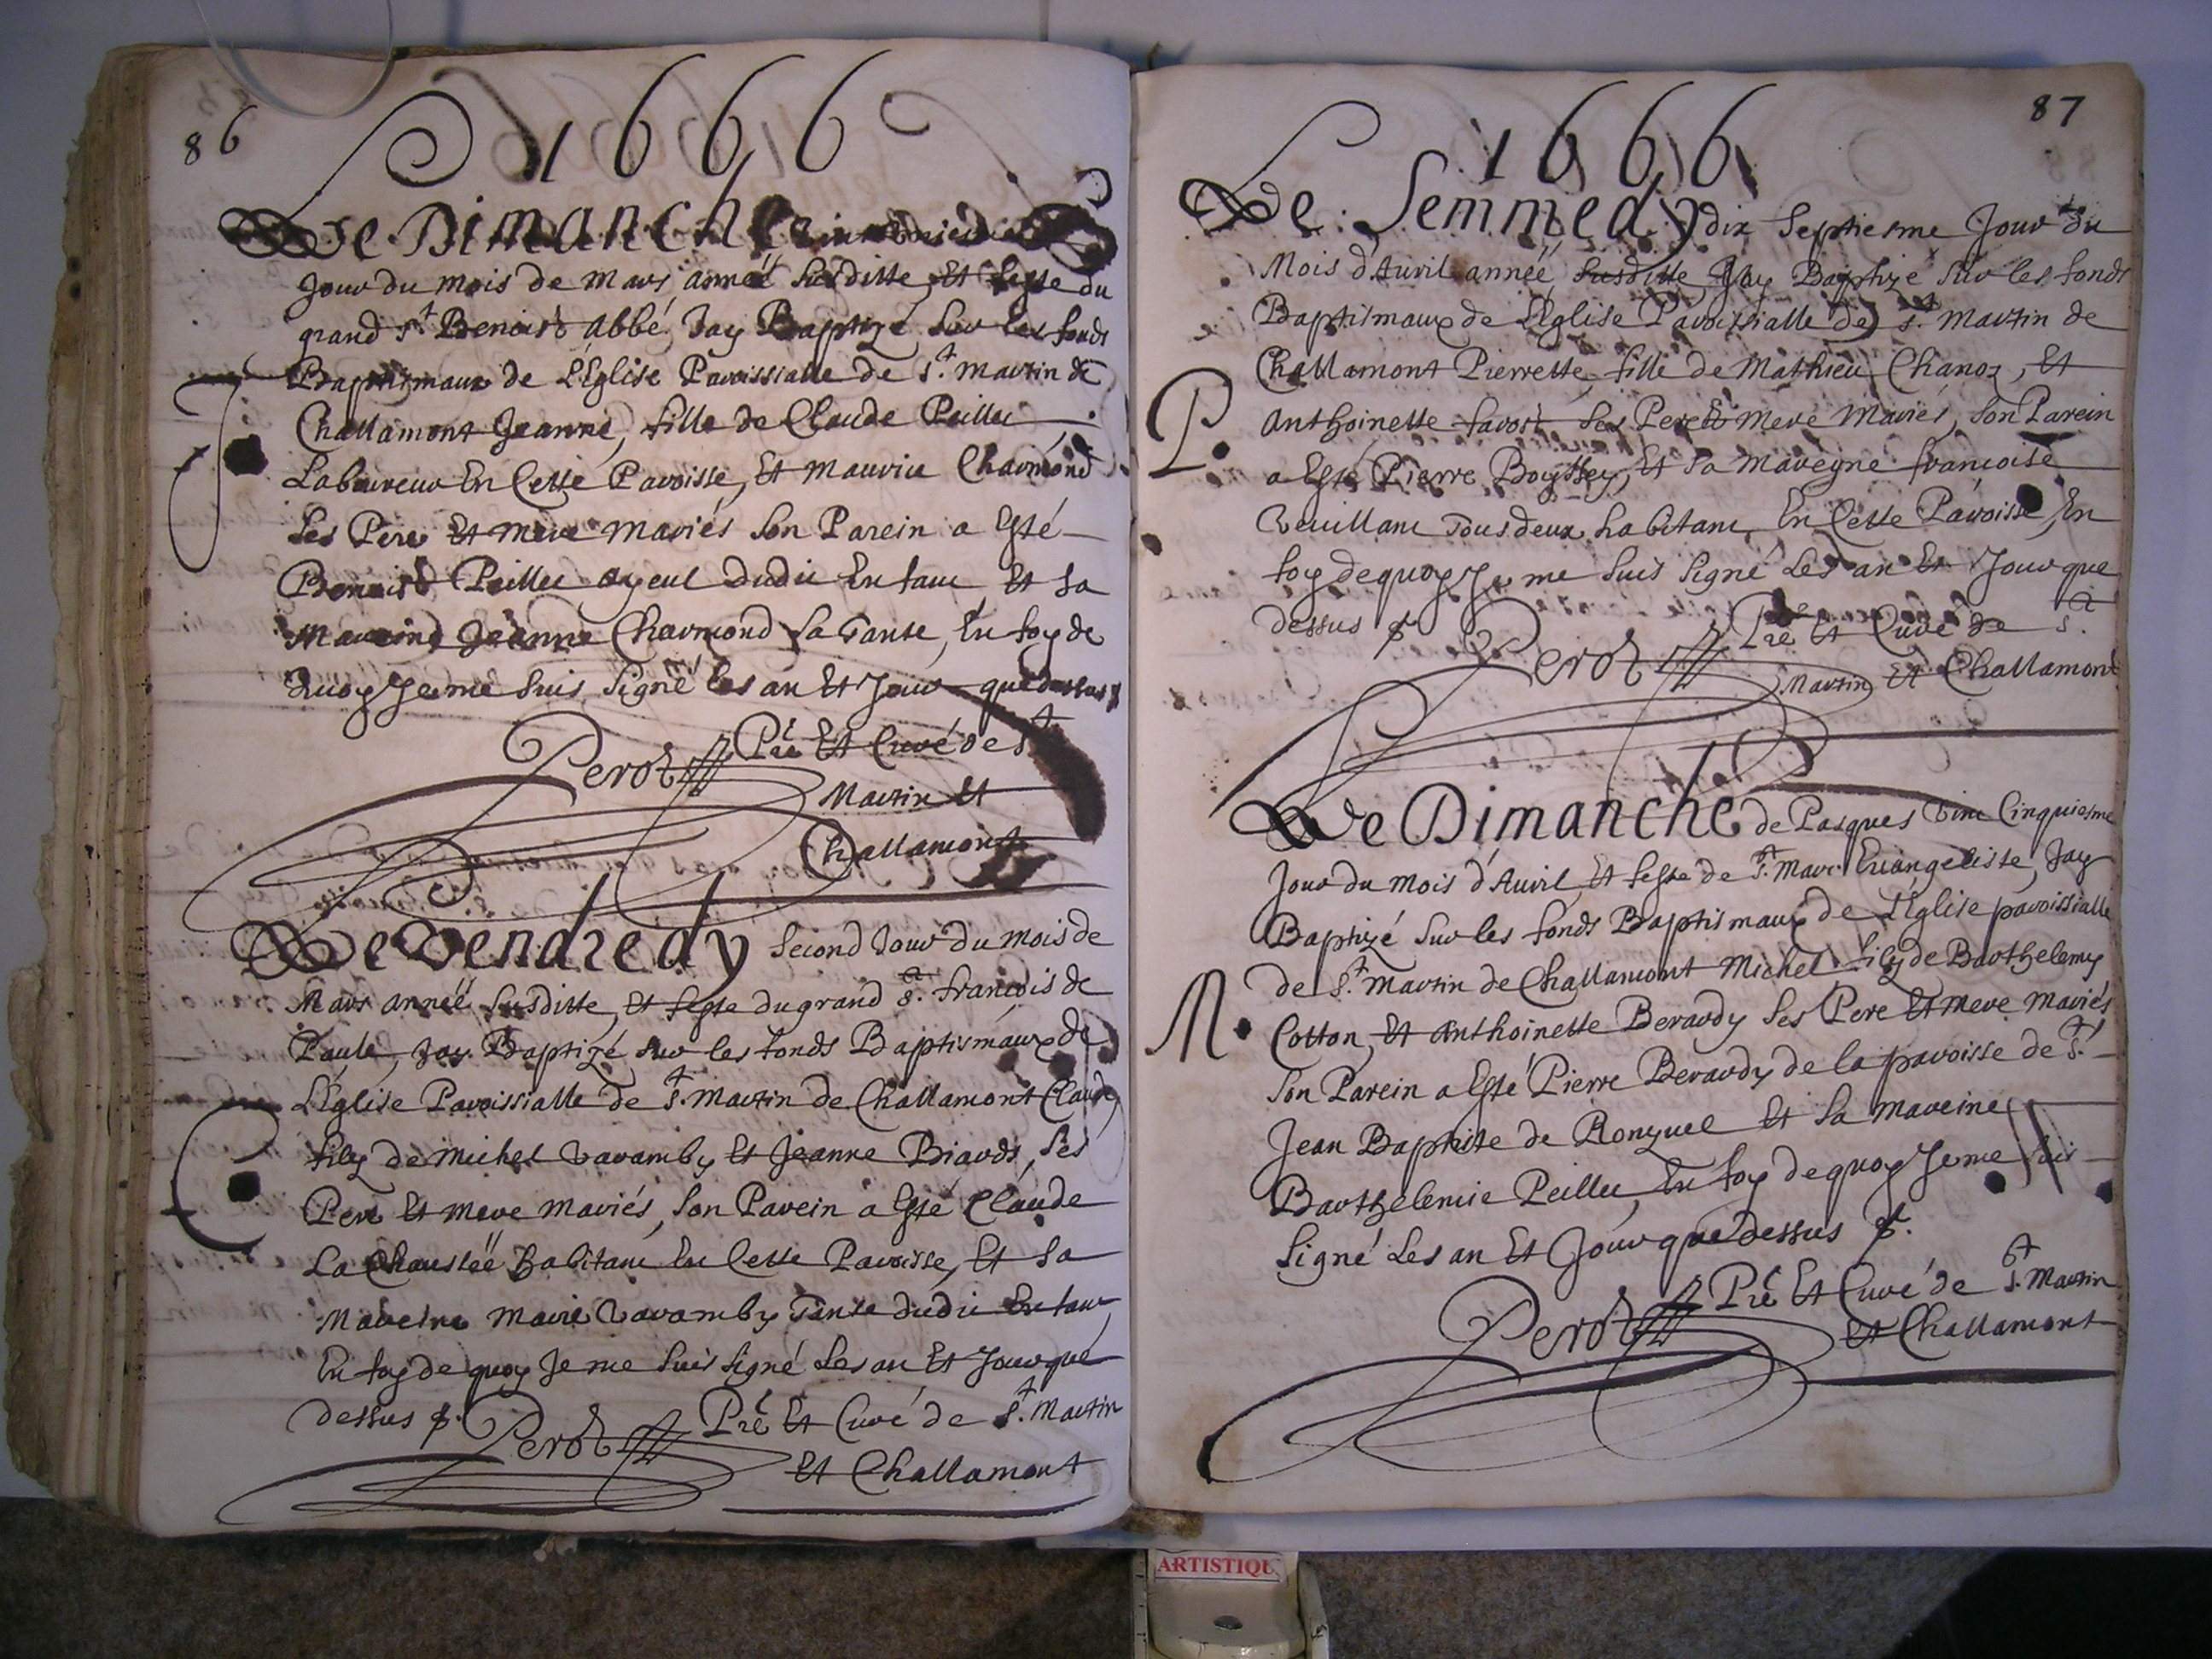 86
1666
Le Dimanche
Jour du mois de Mars année susditte, Et feste du
grand St Benoist Abbé, Jay Baptizé sur les fonds
Baptismaux de L'Eglise Paroissialle de St. Martin de
Challamont Jeanne, fille de Claude Peillet
J
Laboureur En Cette Paroisse, Et Maurice Charmond
ses Pere Et Mere mariés son Parein a Esté
Benoist Peillet ayeul dudit Enfant, Et sa
Mareine Jeanne Charmond sa Tante, En foy de
quoy Je me suis signé les an Et Jour que dessus
Perot Pre Et Curé de St
Martin Et
Challamont
Le Vendredy second Jour du mois de
Mars année susditte, Et feste du grand St. François de
Paule, Jay Baptizé sur les fonds Baptismaux de
L'Eglise Paroissialle de St. Martin de Challamont Claude,
C
filz de Michel Varamby Et Jeanne Biards, ses
Pere Et Mere mariés, son Parein a Esté Claude
La Chaussëe habitant En Cette Paroisse, Et sa
Mareine Marie Varamby Tante dudit Enfant,
En foy de quoy Je me suis signé Les an Et Jour que
dessus
Perot Pre Et Curé de St. Martin
Et Challamont
87
1666
Le Semmedy dix Septiesme Jour du
Mois d'Auril année susditte, Jay Baptizé sur les fonds
Baptismaux de L'Eglise Paroissialle de St. Martin de
Challamont Pierrette, fille de Mathieu Chanoz, Et
P
Anthoinette favost ses Pere Et Mere mariés, son Parein
a Esté Pierre Boyssey, Et sa Mareyne françoise
Veuillant Tous deux habitant En Cette Paroisse, En
foy de quoy Je me suis signé Les an Et Jour que
dessus
Perot Pre Et Curé de St.
Martin Et Challamont
Le Dimanche de Pasques Vint Cinquiesme
Jour du Mois d'Auril Et feste de St. Marc Euangeliste, Jay
Baptizé sur les fonds Baptismaux de L'Eglise paroissialle
de St. Martin de Challamont Michel filz de Barthelemy
M
Cotton, Et Anthoinette Berardy ses Pere Et Mere mariés
son Parein a Esté Pierre Berardy de la paroisse de St.
Jean Baptiste de Ronzuel Et sa Mareine
Barthelemie Peillet, En foy de quoy Je me suis
signé Les an Et Jour que dessus
Perot Pre Et Curé de St. Martin
Et Challamont
ARTISTIQU